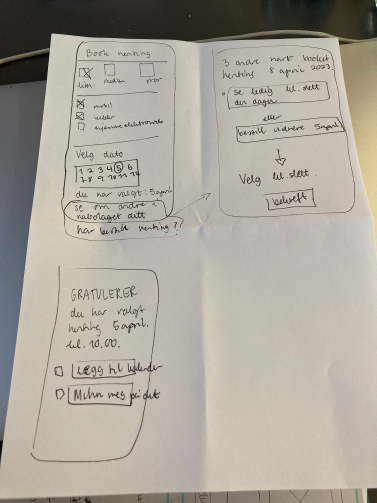 Book henting
liten medium stor
mobil
kabler
Velg dato
1 2 3 4 5 6
7 8 9 10 11 12
du har valgt: 5 april
se om andre i
nabolaget ditt
har bestilt henting?
3 andre har booket
henting 8 april 2023
se ledig kl. slett
den dagen
eller
bestill videre 5 april
Velg kl. slett.
bekreft
GRATULERER
du har valgt
henting 5 april.
kl. 10.00.
Legg til kalender
Minn meg på det